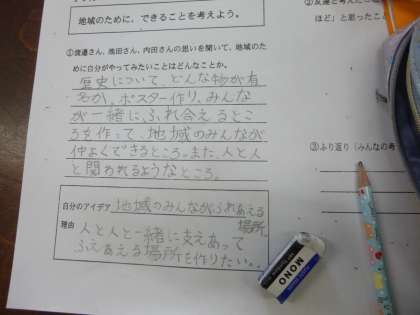 地域のために、できることを考えよう。
①渡邉さん、池田さん、内田さんの思いを聞いて、地域のた
めに自分がやってみたいことはどんなことか。
歴史について、どんな物が有
名か。ポスター作り、みんな
が一緒に、ふれ合えるとこ
ろを作って、地域のみんなが
仲よくできるところ。また、人と人
と関われるようなところ。
自分のアイデア 地域のみんながふれあえる
場所
理由 人と人と一緒に支えあって
ふえあえる場所を作りたい。
②友達と考え
ほど」と思ったこ
③ふり返り（みんなの考
MONO